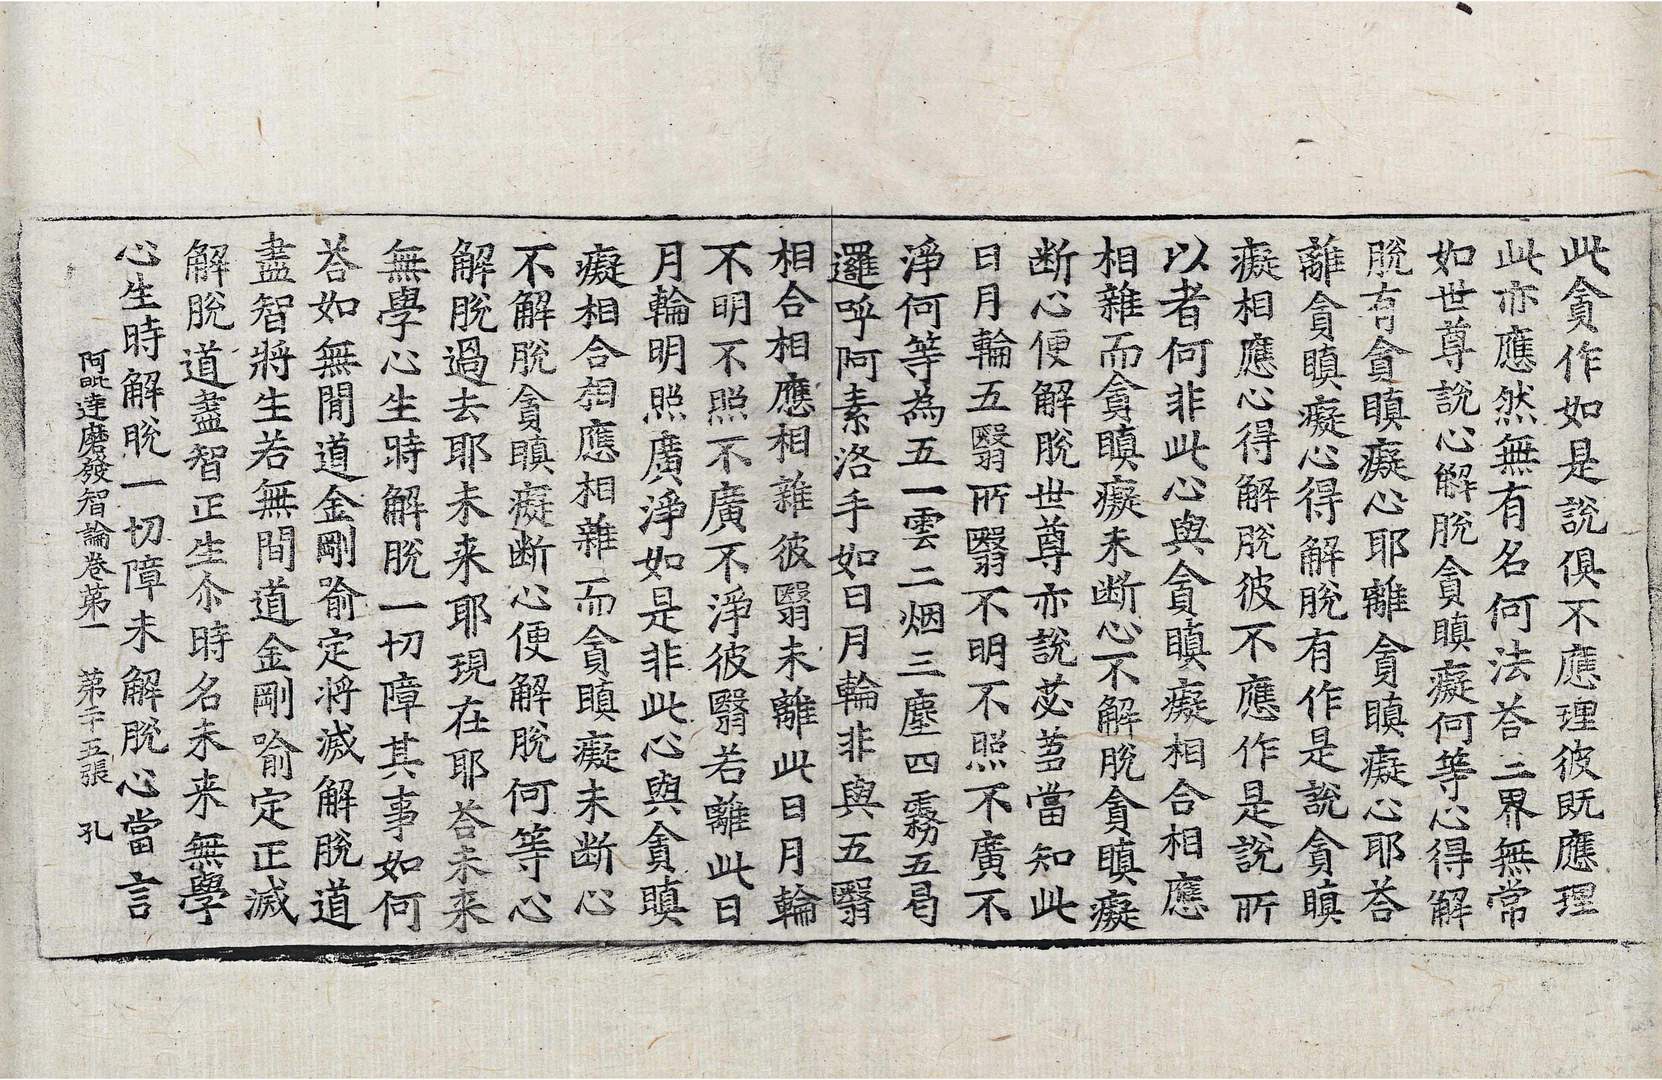 此貪作如是說俱不應理彼旣應理
此亦應然無有名何法答三界無常
如世尊說心解脫貪瞋癡何等心得解
脫有貪瞋癡心耶離貪瞋癡心耶答
離貪瞋癡心得解脫有作是說貪瞋
癡相應心得解脫彼不應作是說所
以者何非此心與貪瞋癡相合相應
相雜而貪瞋癡未断心不解脫貪瞋癡
断心便解脫世尊亦說苾芻當知此
日月輪五翳所翳不明不照不廣不
淨何等為五一雲二烟三塵四霧五曷
邏呼阿素洛手如日月輪非與五翳
相合相應相雜彼翳未離此日月輪
不明不照不廣不淨彼翳若離此日
月輪明照廣淨如是非此心與貪瞋
癡相合相應相雜而貪瞋癡未断心
不解脫貪瞋癡断心便解脫何等心
解脫過去耶未来耶現在耶答未来
無學心生時解脫一切障其事如何
答如無間道金剛喻定將滅解脫道
盡智將生若無間道金剛喻定正滅
解脫道盡智正生尒時名未来無學
心生時解脫一切障未解脫心當言
阿毗達磨發智論卷苐一 苐二十五張 孔